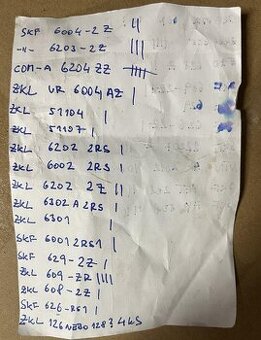 SKF 6004-2Z ||
-"- 6203-2Z |||
COM-A 6204 ZZ ||||
ZKL UR 6004 AZ |
ZKL 51104 |
ZKL 51107 |
ZKL 6202 2RS |
ZKL 6002 2RS |
ZKL 6202 2Z ||
ZKL 6302 A 2RS |
ZKL 6301 |
SKF 6001 2RS1 |
SKF 629-2Z |
ZKL 609-ZR ||||
ZKL 608-2Z |
SKF 626-RS1 |
ZKL 126 NEBO 128? 4KS